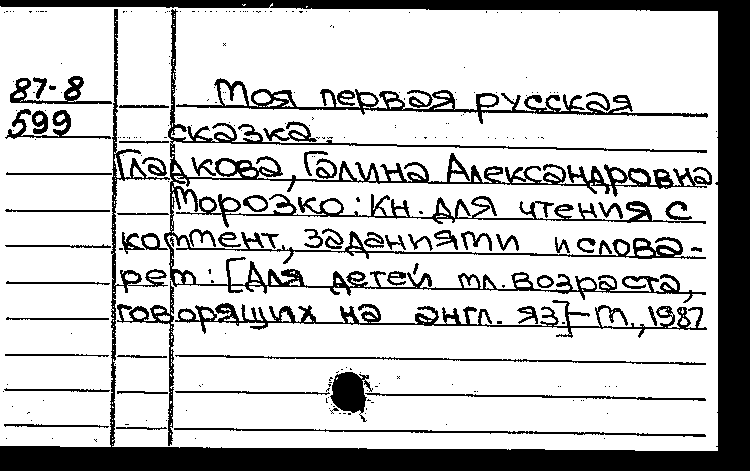 87-8
599
Моя первая русская
сказка.
Гладкова, Галина Александровна.
Морозко: Кн. для чтения с
коммент., заданиями и слова-
рем: [Для детей мл. возраста,
говорящих на англ. яз.]-М., 1987